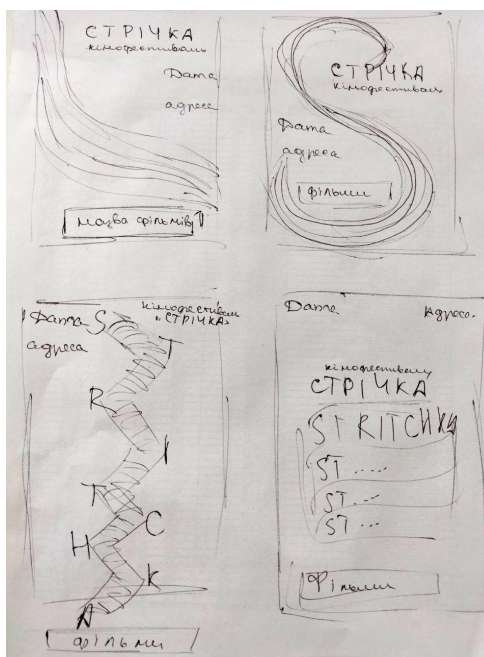 СТРІЧКА
кінофестиваль
Дата
адреса
назва фільмів
СТРІЧКА
кінофестиваль
Дата
адреса
фільми
Дата
адреса
кінофестиваль
"СТРІЧКА"
S
T
R
I
T
C
H
K
A
ФІЛЬМИ
Дата
Адреса
кінофестиваль
СТРІЧКА
STRITCHKA
ST .....
ST ...
ST ...
Фільми